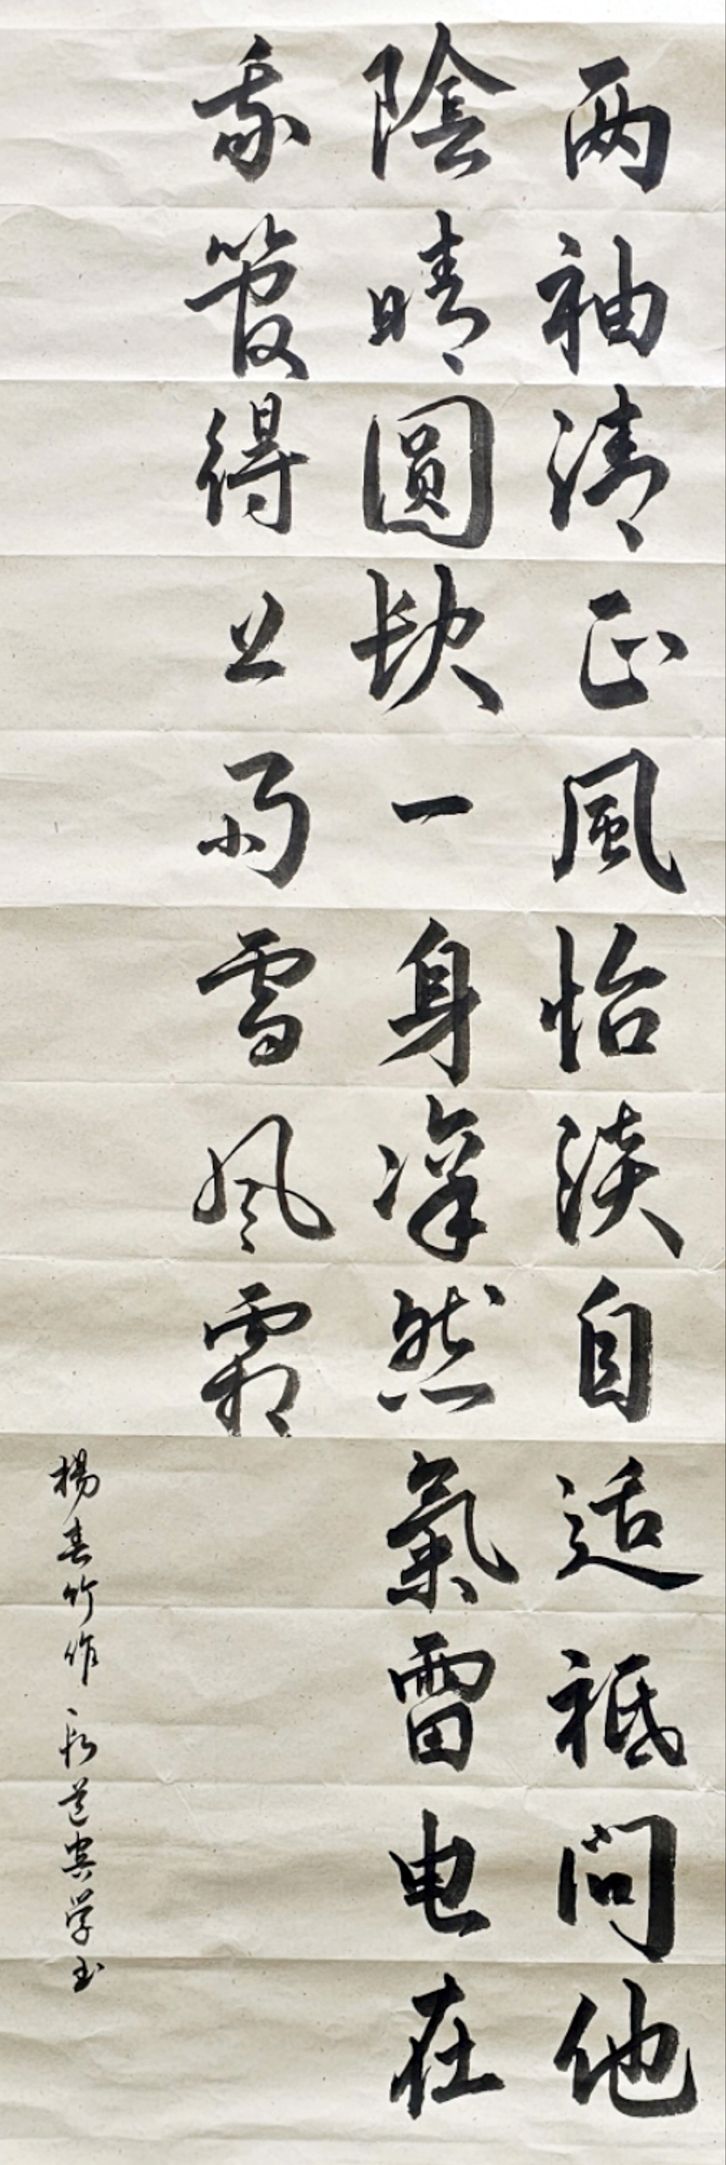 两袖清正風怡淡自适祗問他
陰晴圓缺一身凛然氣雷电在
我管得雨雪風霜
楊春竹作 道学书